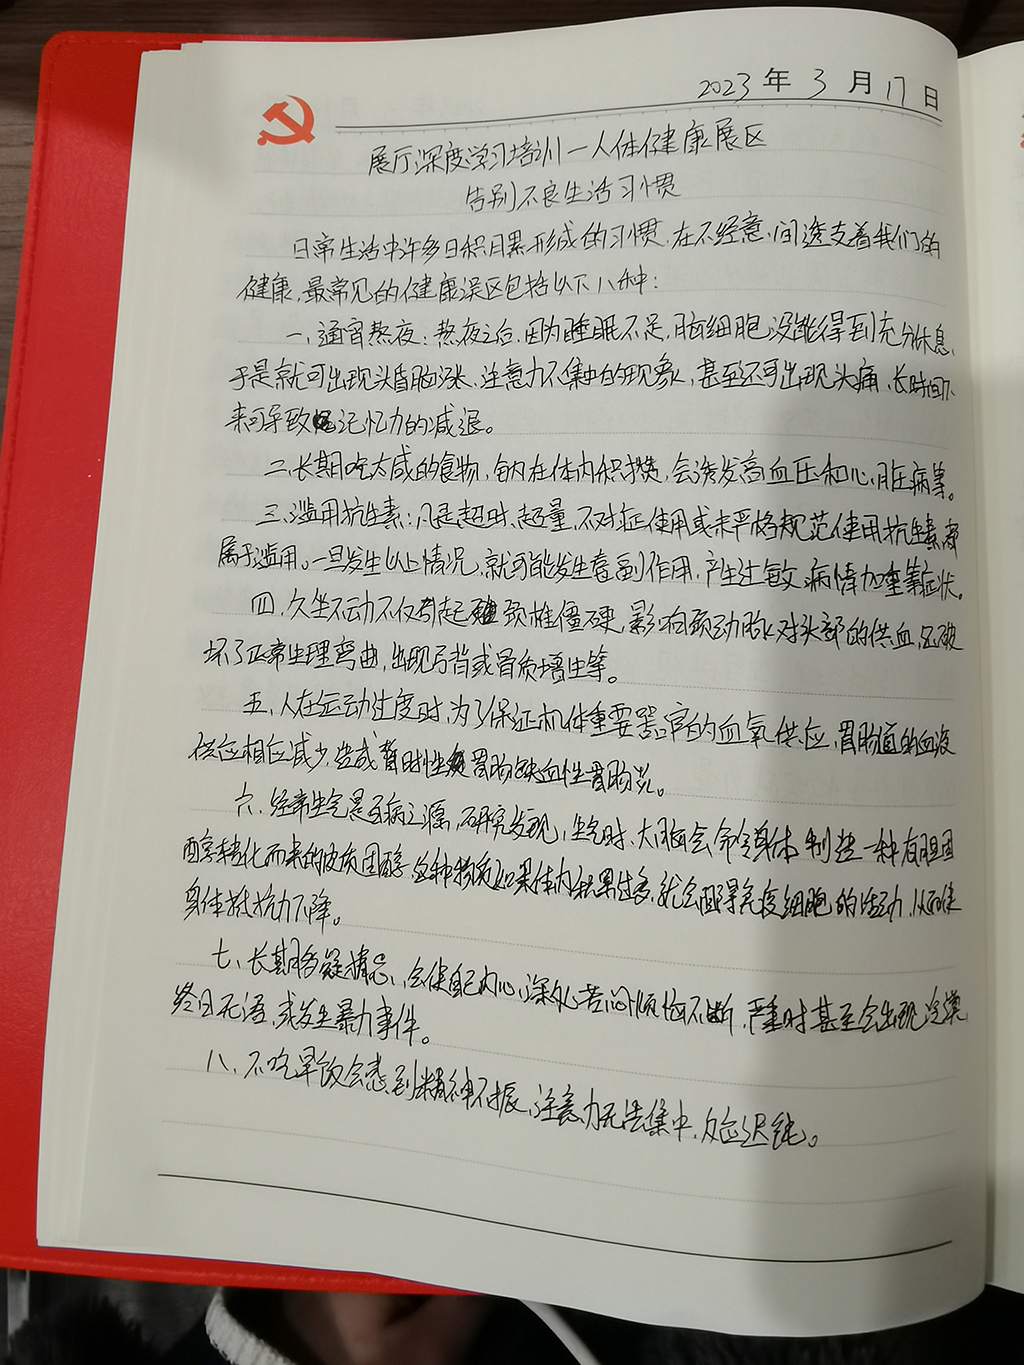 2023年3月17日
展厅深度学习培训一人体健康展区
告别不良生活习惯
日常生活中许多日积月累形成的习惯,在不经意间透支着我们的
健康,最常见的健康误区包括以下八种:
一、通宵熬夜:熬夜之后,因为睡眠不足,脑细胞没能得到充分休息,
于是就可出现头昏脑涨、注意力不集中的现象,甚至还可出现头痛、长时间下
来可导致记忆力的减退。
二、长期吃太咸的食物,钠在体内积攒,会诱发高血压和心脏病等。
三、滥用抗生素:凡是超时、超量、不对症使用或未严格规范使用抗生素,都
属于滥用。一旦发生以上情况,就可能发生毒副作用,产生过敏、病情加重等症状。
四、久坐不动不仅引起颈椎僵硬,影响颈动脉对头部的供血,还破
坏了正常生理弯曲,出现弓背或骨质增生等。
五、人在运动过度时,为了保证机体重要器官的血氧供应,胃肠道的血液
供应相应减少,造成暂时性胃肠缺血性胃肠炎。
六、经常生气是百病之源,研究发现,生气时、大脑会命令身体制造一种有胆固
醇转化而来的皮质固醇,这种物质如果体内积累过多,就会阻碍免疫细胞的活动,从而使
身体抵抗力下降。
七、长期猜疑猜忌,会使自己内心深处苦闷烦恼不断,严重时甚至会出现冷漠
终日无语,或发生暴力事件。
八、不吃早饭会感到精神不振,注意力无法集中,反应迟钝。